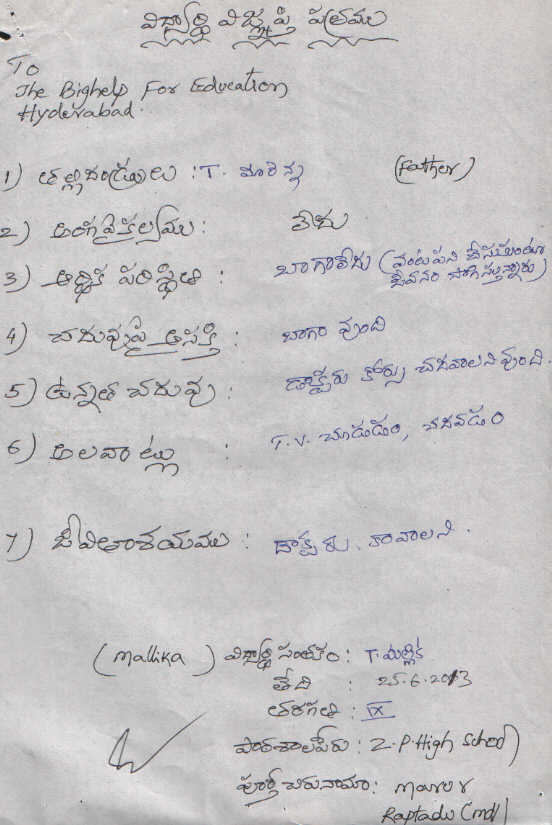 విద్యార్థి విజ్ఞప్తి పత్రము
To
The Bighelp For Education
Hyderabad.
1) తల్లిదండ్రులు : T. మారెన్న (Father)
2) అంగవైకల్యము : లేదు
3) ఆర్థిక పరిస్థితి : బాగాలేదు (వంటపని చేసుకుంటూ
జీవనం సాగిస్తున్నారు)
4) చదువుపై ఆసక్తి : బాగా వుంది
5) ఉన్నత చదువు : డాక్టరు కోర్సు చదవాలనివుంది.
6) అలవాట్లు : T.V. చూడడం, చదవడం
7) జీవితాశయము : డాక్టరు కావాలని.
(Mallika) విద్యార్థి సంతకం : T. మల్లిక
తేది : 25-6-2013
తరగతి : IX
పాఠశాలపేరు : Z.P High School
పూర్తి చిరునామా : Marur
Raptadu (md)